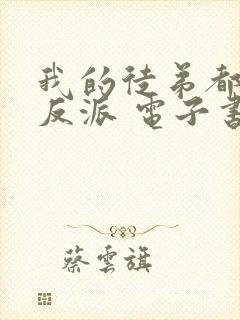 我的徒弟都
反派 電子書
蔡雲旗